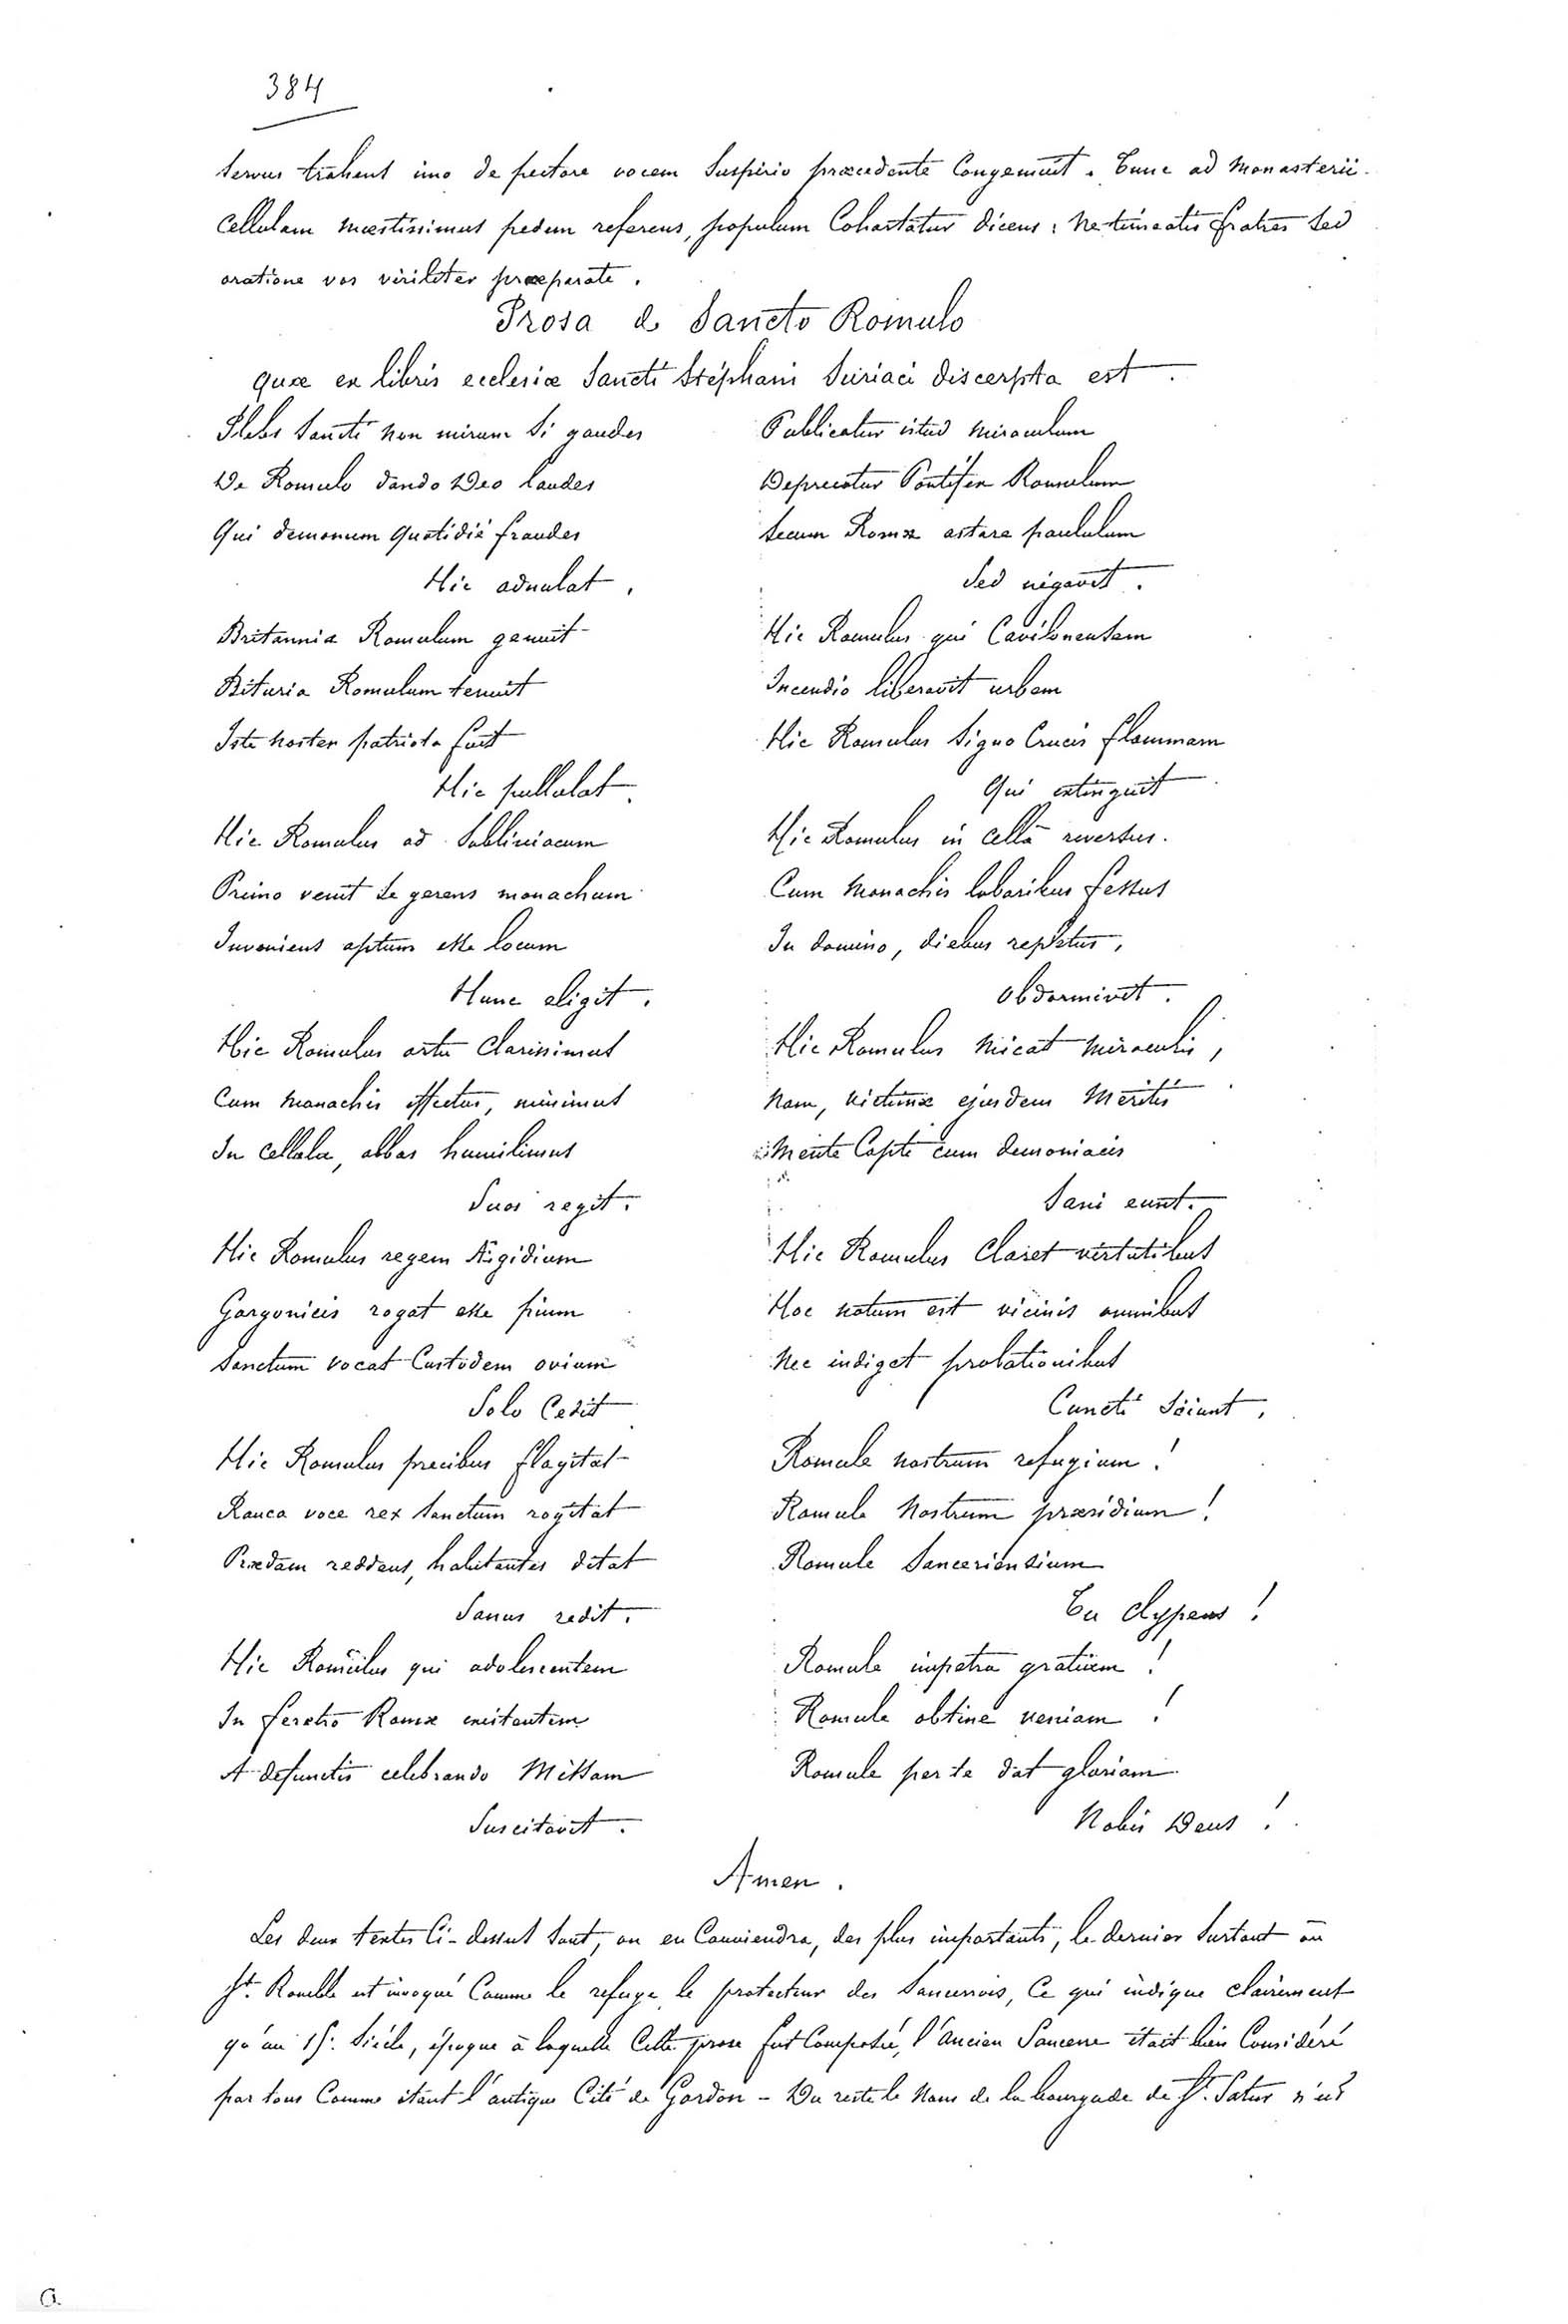 384
servus trahens imo de pectore vocem suspirio præcedente Congemuit. Tunc ad Monasterii
Cellulam mœstissimus pedem referens, populum Cohortatur dicens : Ne timeatis fratres sed
oratione vos viriliter præparate.
Prosa de Sancto Romulo
quæ ex libris ecclesiæ Sancti Stéphani Suriaci discerpta est.
Plebs Sancti non mirum Si gaudes
De Romulo dando Deo laudes
Qui demonum quotidiè fraudes
Hic adnulat.
Britannia Romulum genuit
Bituria Romulum tenuit
Iste noster patriota fuit
Hic pullulat.
Hic Romulus ad Subliniacum
Primo venit se gerens monachum
Inveniens aptum esse locum
Hunc eligit.
Hic Romulus ortu Clarissimus
Cum Monachis effectus, minimus
In Cellula, abbas humilimus
Suos regit.
Hic Romulus regem Ægidium
Gorgonicis rogat esse pium
Sanctum vocat Custodem ovium
Solo Cedit
Hic Romulus precibus flagitat
Rauca voce rex Sanctum rogitat
Prædam reddens, habitantes ditat
Sanus redit.
Hic Romulus qui adolescentem
In feretro Romæ existentem
A defunctis celebrando Missam
Suscitavit.
Publicatur istud Miraculum
Deprecatur Pontifex Romulum
Secum Romæ astare paululum
Sed négavit.
Hic Romulus qui Cavilonensem
Incendio liberavit urbem
Hic Romulus Signo Crucis flammam
Qui extinguit
Hic Romulus in Cellâ reversus.
Cum Monachis laboribus fessus
In domino, diebus repletus,
Obdormivit.
Hic Romulus Micat Miraculis,
Nam, Victimæ ejusdem Méritis
Mente Capti cum demoniacis
Sani eunt.
Hic Romulus Claret virtutibus
Hoc notum est vicinis omnibus
Nec indiget probationibus
Cuncti Sciunt,
Romule nostrum refugium !
Romule Nostrum præsidium !
Romule Sanceriensium
Tu Clypeus !
Romule impetra gratiam !
Romule obtine veniam !
Romule per te dat gloriam
Nobis Deus !
Amen.
Les deux textes Ci-dessus Sont, on en Conviendra, des plus importants, le dernier Surtout où
St. Romble est invoqué Comme le refuge le protecteur des Sancerrois, Ce qui indique clairement
qu'au Siècle, époque à laquelle Cette prose fut Composée, l'ancien Sancerre était bien Considéré
par tous Comme étant l'antique Cité de Gordon - Du reste le Nom de la bourgade de St. Satur n'est